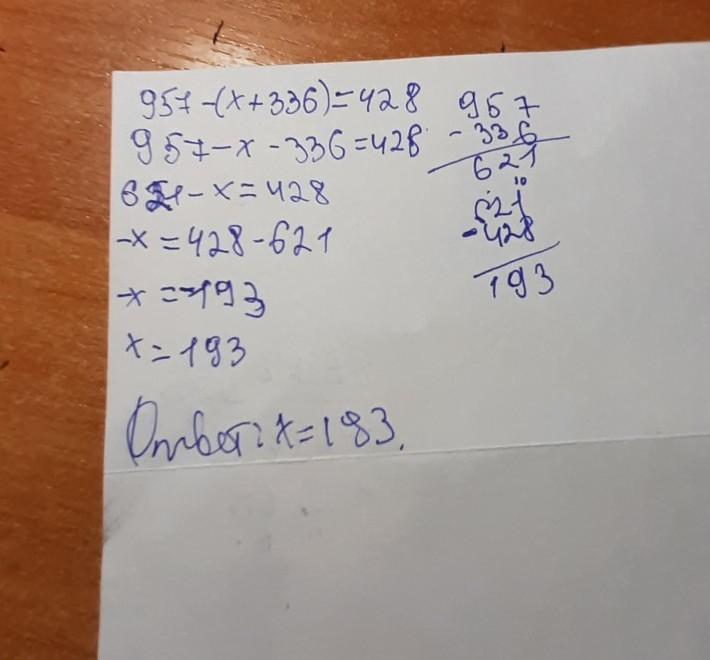 957-(x+336)=428
957-x-336=428
621-x=428
-x=428-621
-x=-193
x=193
Ответ: x=193.
957
-336
621
621
-428
193